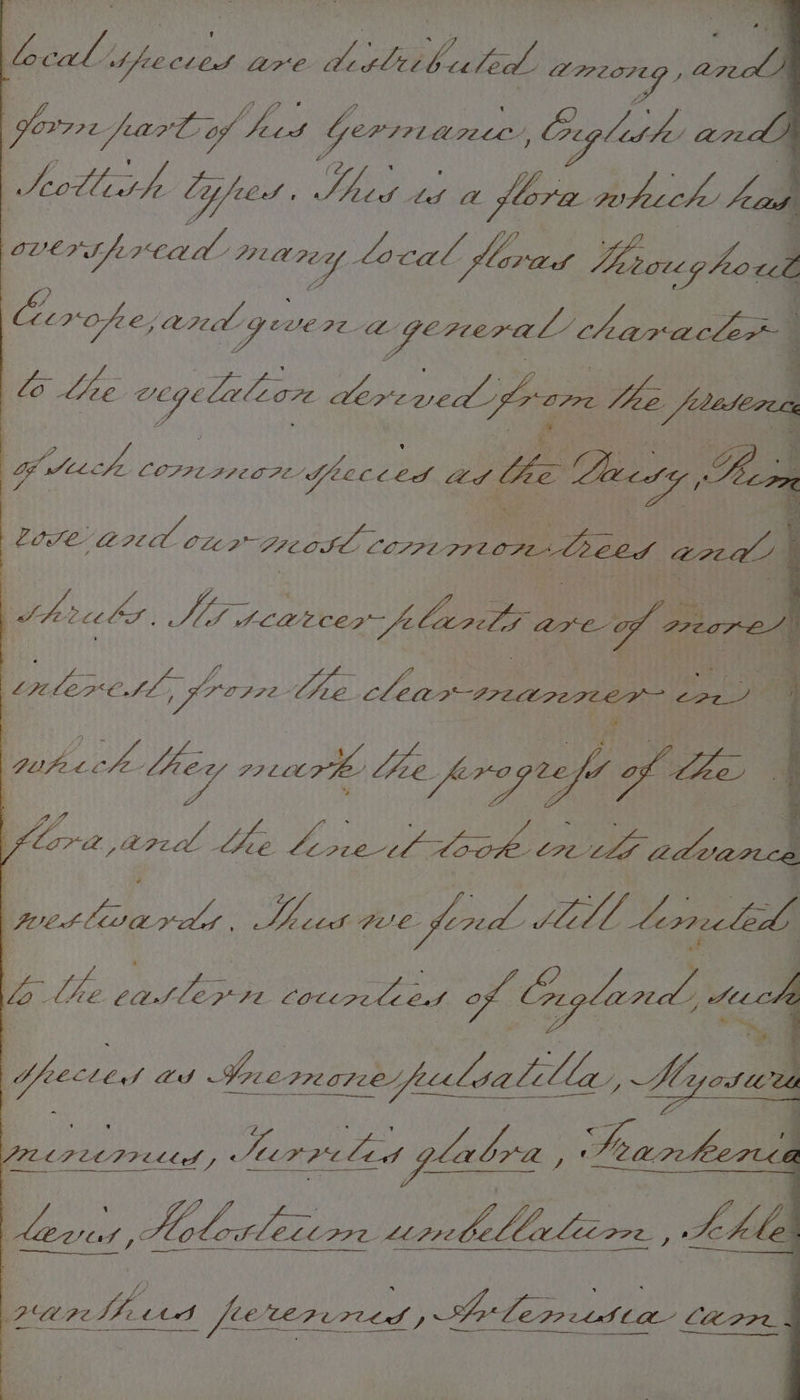 local species are distributed among, and
form part of his Germanic, English and
Scottish types. This is a flora which has
overspread many local floras throughout
Europe, and given a general character
to the vegetation derived from the presence
of such common species as the Daisy, Prim
rose and our most common trees and
shrubs. Its scarcer plants are of more
interest, from the clear manner in
which they mark the progress of the
flora, and the line it took in its advance
westwards. Thus we find still limited
to the eastern counties of England, such
species as Anemone pulsatilla, Myosuru
minimus, Turritis glabra, Frankenia
lævis, Holosteum umbellatum, Schle
ranthus perennis, Artemisia cam